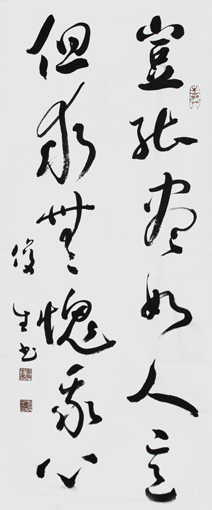 豈能尽如人意
但求無愧我心
俊生书